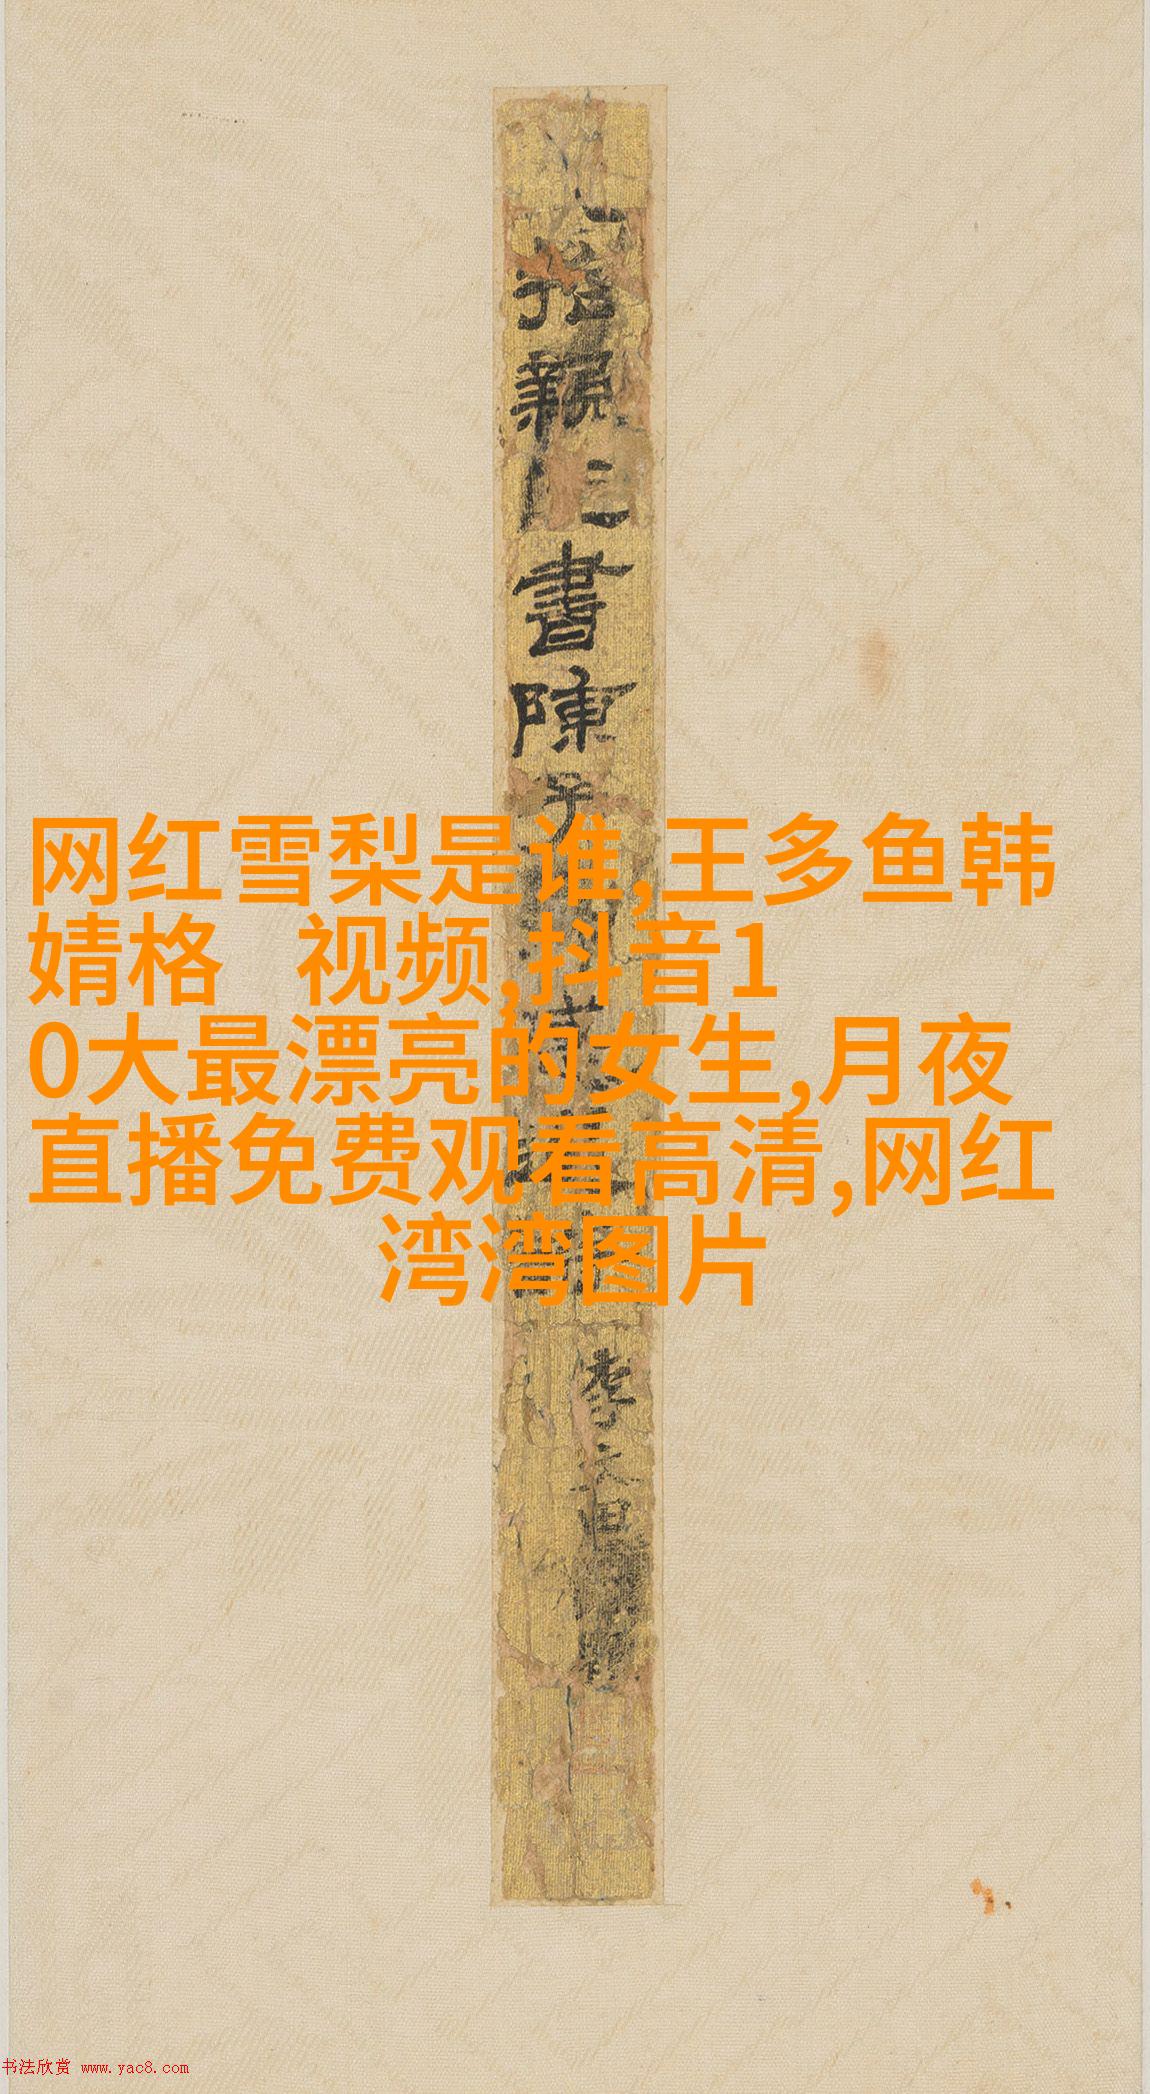 書陳子
李文田
网红雪梨是谁,王多鱼韩
婧格 视频,抖音1
0大最漂亮的女生,月夜
直播免费观看高清,网红
湾湾图片
书法欣赏 www.yac8.com